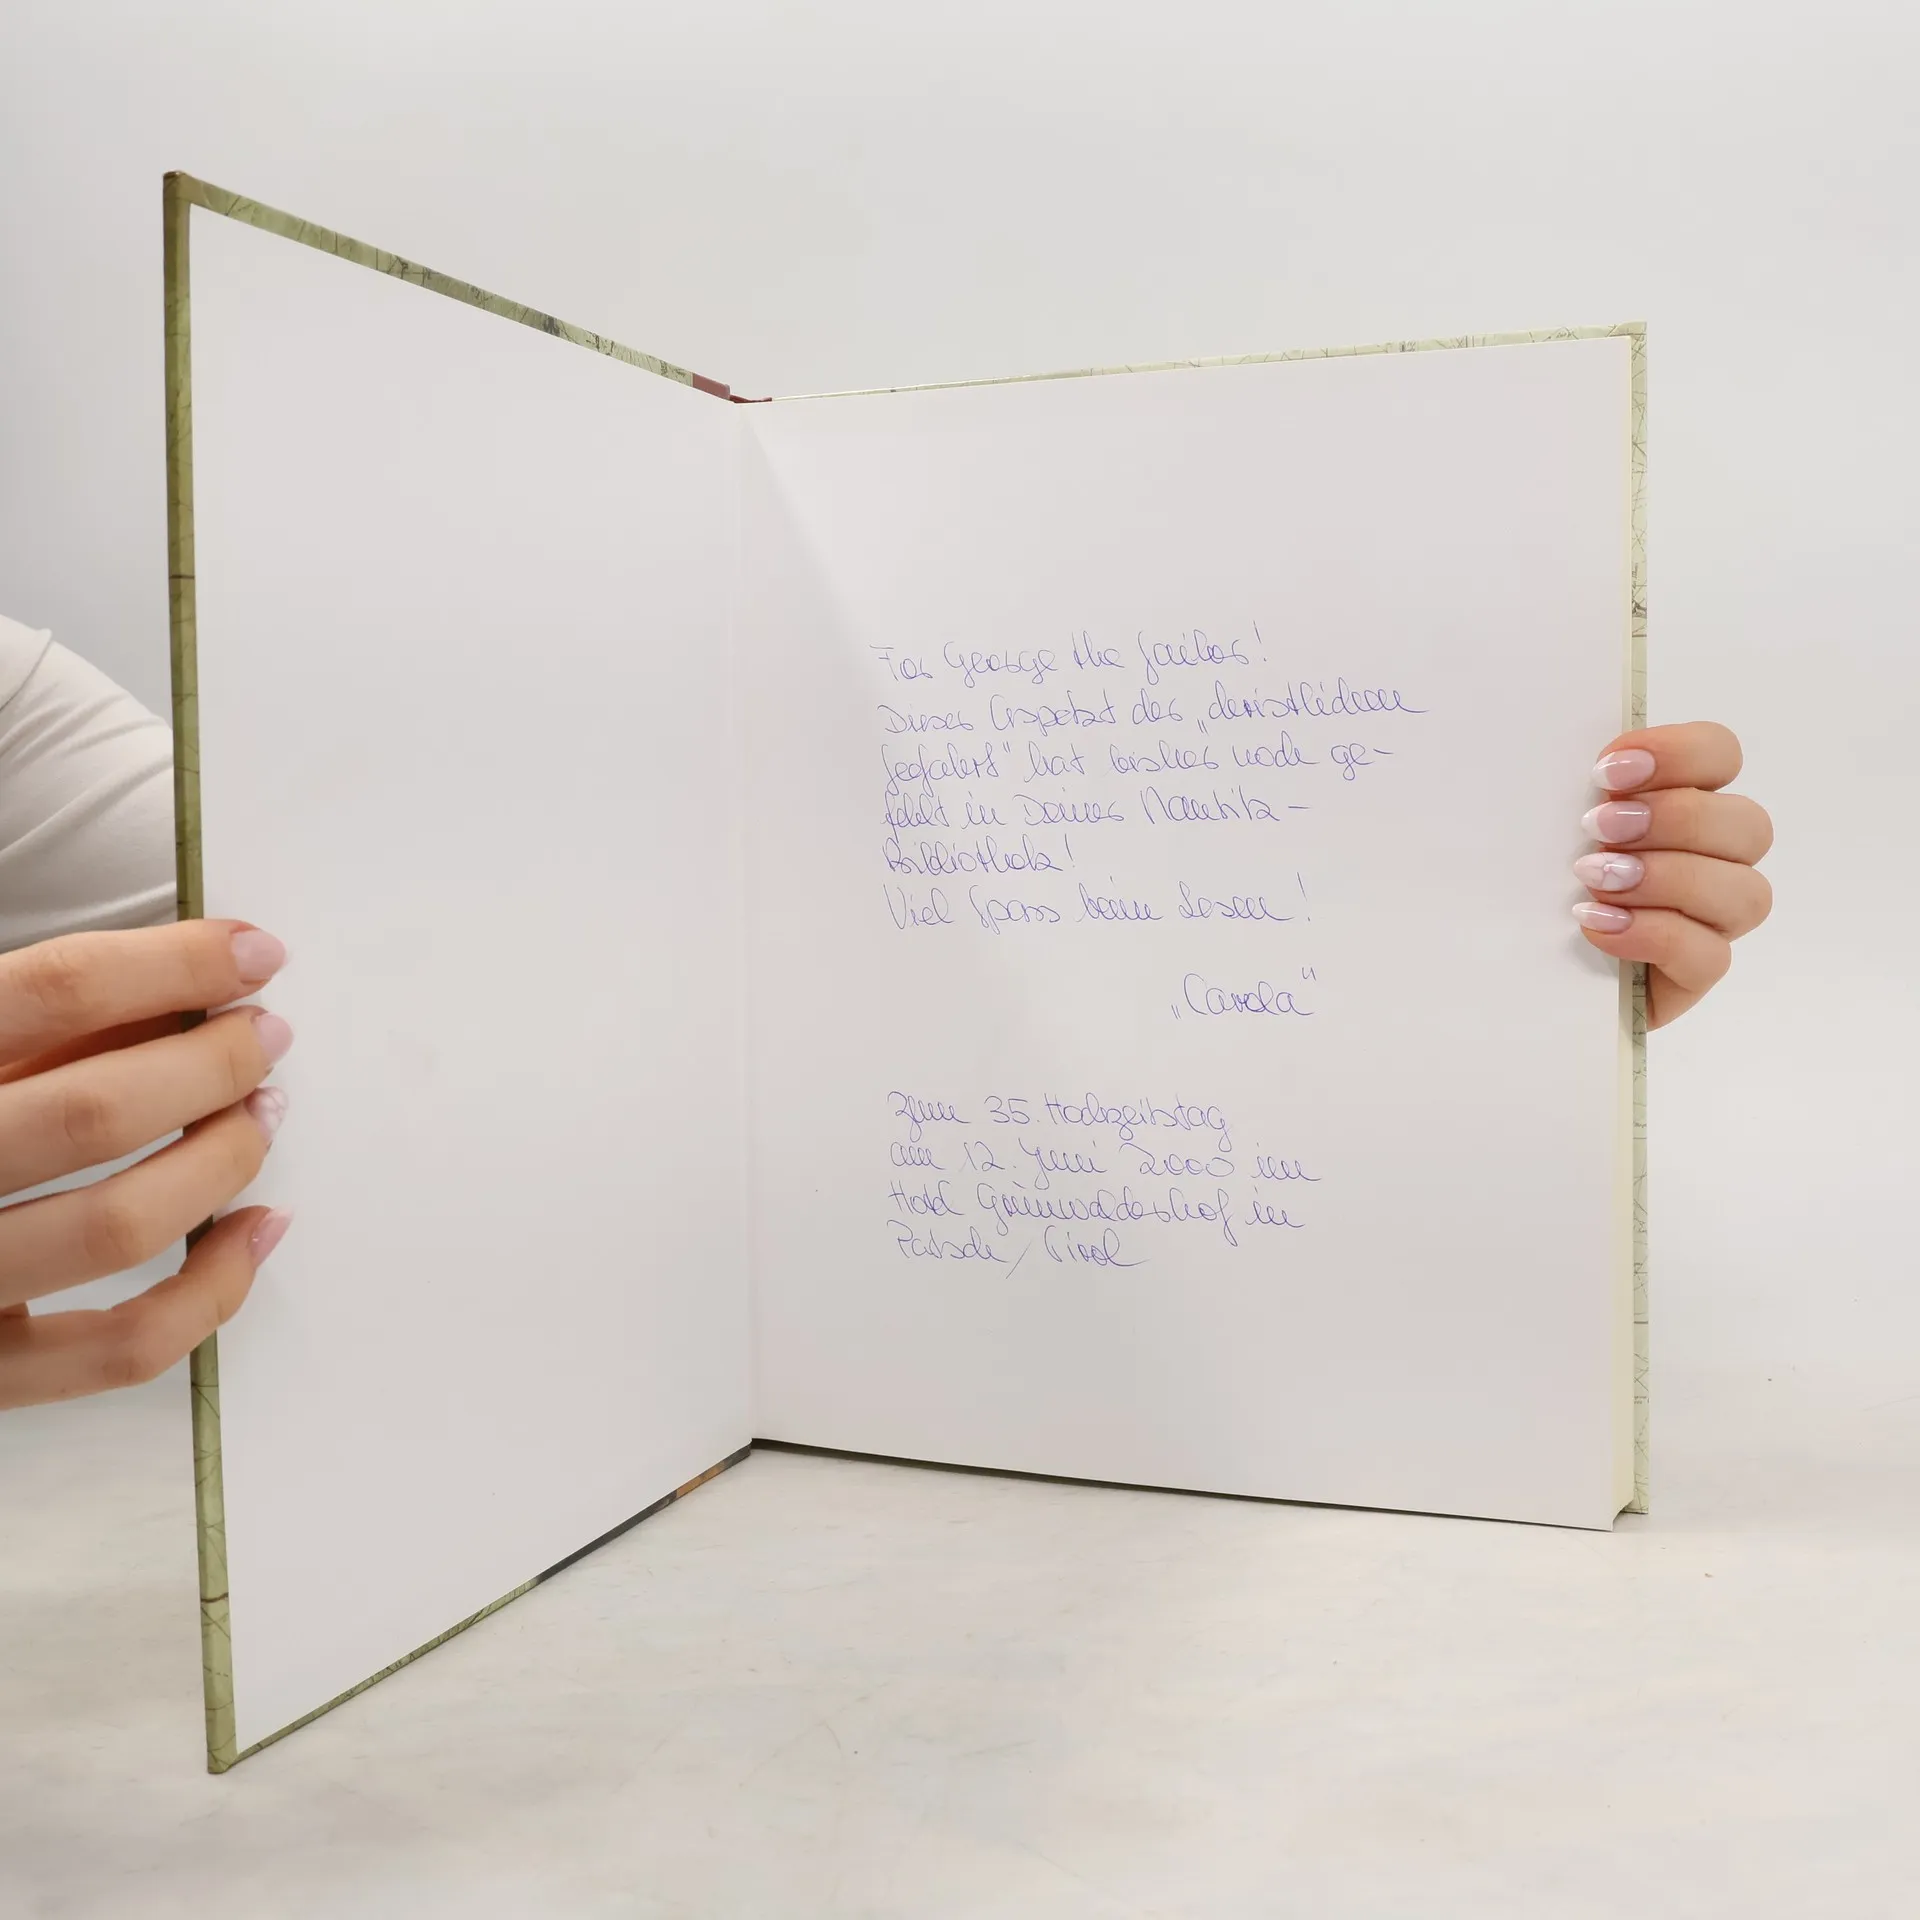 For George the Sailor!
Dieser Aspekt der „christlichen
Seefahrt" hat bisher noch ge-
fehlt in Deiner Nautik-
Bibliothek!
Viel Spass beim Lesen!
„Carola"
Zum 35. Hochzeitstag
am 12. Juni 2000 im
Hotel Grünwalderhof in
Patsch / Tirol